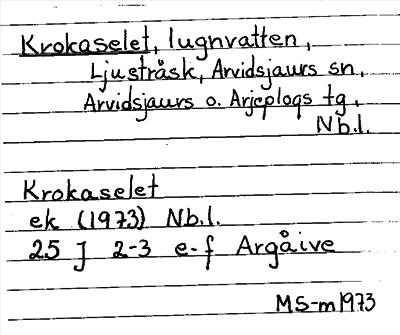 Krokaselet, lugnvatten,
Ljusträsk, Arvidsjaurs sn,
Arvidsjaurs o. Arjeplogs tg.
Nb.l.
Krokaselet
ek (1973) Nb.l.
25 J 2-3 e-f Argåive
MS-m1973